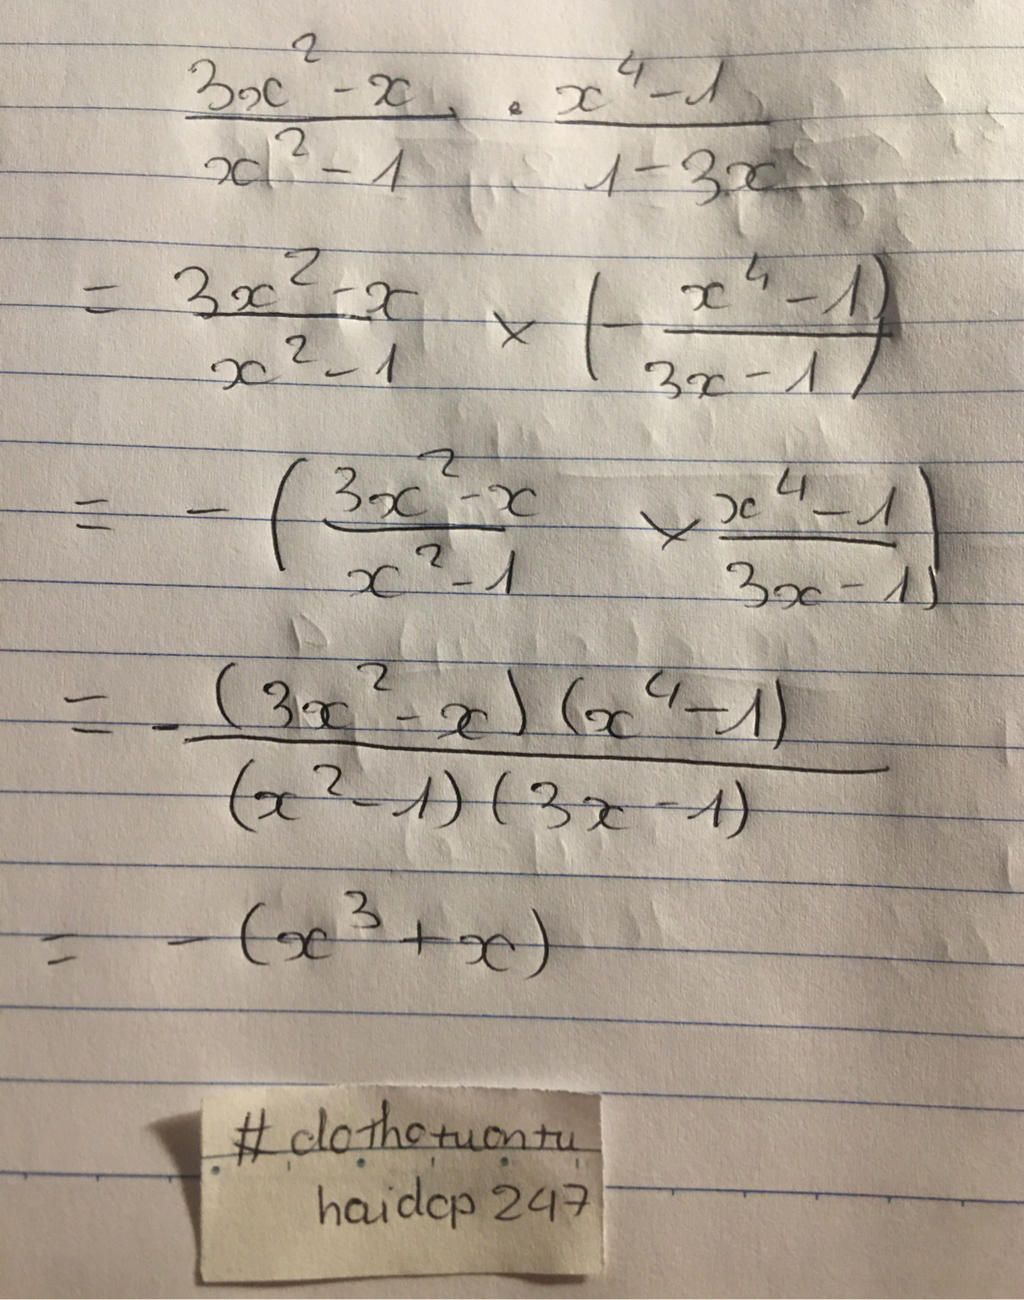 (3x² - x)/(x² - 1) · (x⁴ - 1)/(1 - 3x)
= (3x² - x)/(x² - 1) × (- (x⁴ - 1)/(3x - 1))
= - ((3x² - x)/(x² - 1) × (x⁴ - 1)/(3x - 1))
= - ((3x² - x)(x⁴ - 1))/((x² - 1)(3x - 1))
= - (x³ + x)
# dothotuontu
haidcp 247